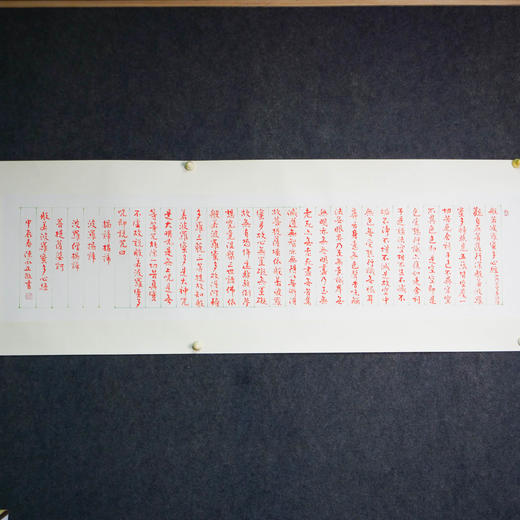 般若波羅蜜多心經
觀自在菩薩行深般若波羅
蜜多時照見五蘊皆空度一
切苦厄舍利子色不異空空
不異色色即是空空即是
色受想行識亦復如是舍利
子是諸法空相不生不滅不
垢不淨不增不減是故空中
無色無受想行識無眼耳
鼻舌身意無色聲香味觸
法無眼界乃至無意識界無
無明亦無無明盡乃至無
老死亦無老死盡無苦集
滅道無智亦無得以無所得
故菩提薩埵依般若波羅
蜜多故心無罣礙無罣礙
故無有恐怖遠離顛倒夢
想究竟涅槃三世諸佛依
般若波羅蜜多故得阿耨
多羅三藐三菩提故知般
若波羅蜜多是大神咒
是大明咒是無上咒是無
等等咒能除一切苦真實
不虛故說般若波羅蜜多
咒即說咒曰
揭諦揭諦
波羅揭諦
波羅僧揭諦
菩提薩婆訶
般若波羅蜜多心經
甲辰春陳正敬書